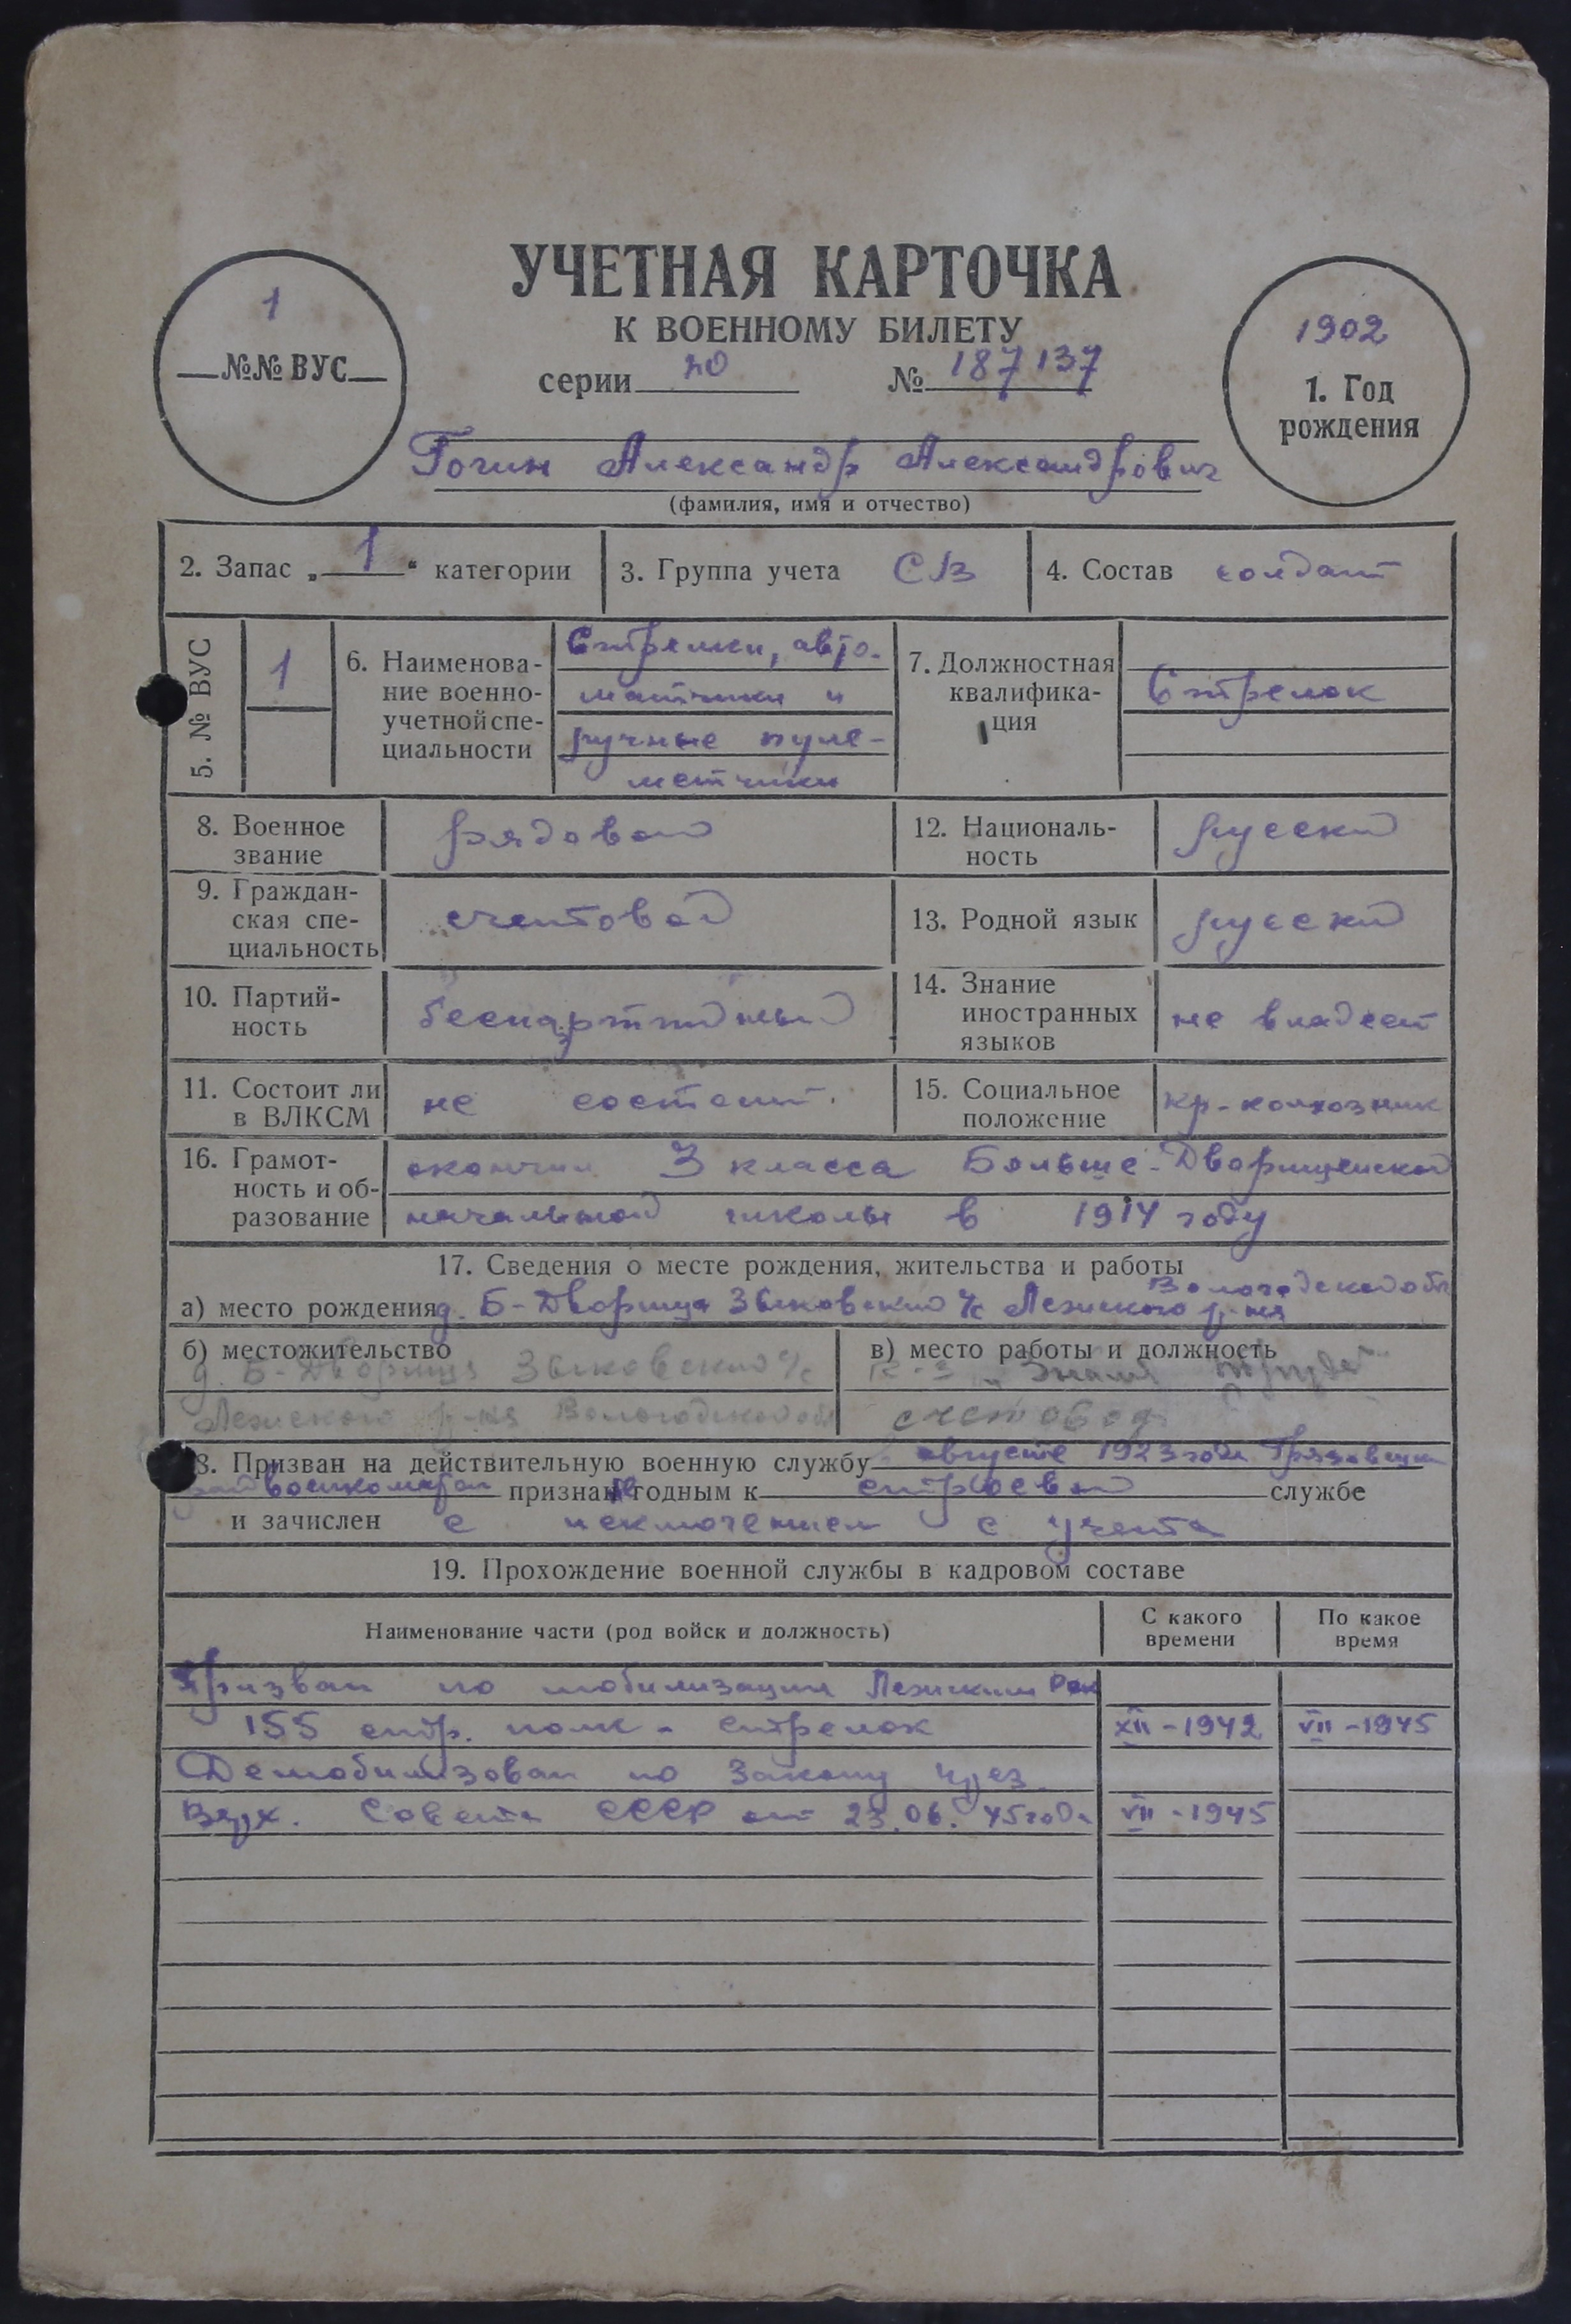 УЧЕТНАЯ КАРТОЧКА
К ВОЕННОМУ БИЛЕТУ
серии по № 187137
1
№№ ВУС
1902
1. Год
рождения
Гогин Александр Александрович
(фамилия, имя и отчество)
2. Запас „1“ категории
3. Группа учета СВ
4. Состав солдат
5. № ВУС
1
6. Наименова-
ние военно-
учетной спе-
циальности
Стрелки, авто-
матчики и
ручные пуле-
метчики
7. Должностная
квалифика-
ция
Стрелок
8. Военное
звание
рядовой
12. Националь-
ность
русский
9. Граждан-
ская спе-
циальность
счетовод
13. Родной язык
русский
10. Партий-
ность
беспартийный
14. Знание
иностранных
языков
не владеет
11. Состоит ли
в ВЛКСМ
не состоит.
15. Социальное
положение
кр-колхозник
16. Грамот-
ность и об-
разование
окончил 3 класса Больше-Дворищенской
начальной школы в 1914 году
17. Сведения о месте рождения, жительства и работы
Вологодской обл
а) место рождения д. Б-Дворища Зыковский с/с Лежского р-на
б) местожительство
д. Б-Дворища Зыковский с/с
Лежского р-на Вологодской обл
в) место работы и должность
к-з „Знамя Труда“
счетовод
18. Призван на действительную военную службу августе 1923 года Грязовецким
райвоенкоматом признан не годным к строевой службе
и зачислен с исключением с учета
19. Прохождение военной службы в кадровом составе
Наименование части (род войск и должность)
С какого
времени
По какое
время
Призван по мобилизации Лежским Рвк
155 стр. полк - стрелок XII-1942 VII-1945
Демобилизован по Закону през.
Верх. Совета СССР от 23.06.45 года VII-1945